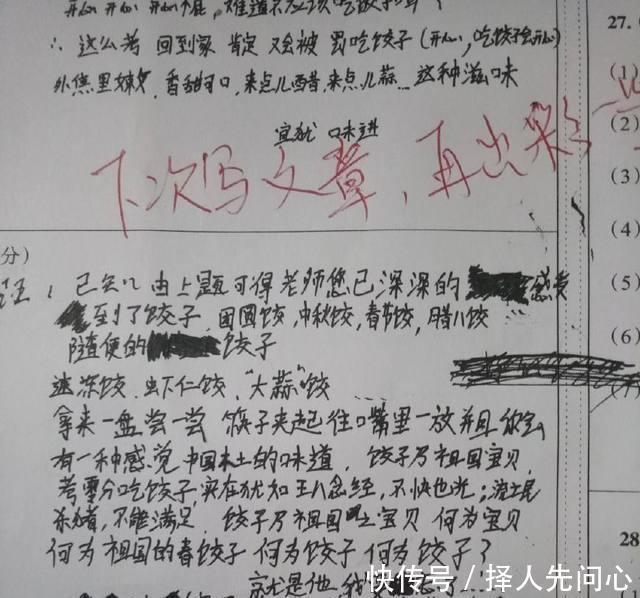 ∴ 这么考 回到家 肯定 又会被 罚吃饺子（开心，吃饺子会开心）
外焦里嫩，香甜可口，来点儿西昔，来点儿蒜… 这种滋味
宜犹 味进
下次写文章，再出彩一
27.
(1)
(2)
(3)
(4)
(5)
(6)
28
分）
已知 由上题可得 老师您已深深的 感觉
至了饺子，团圆饺，中秋饺，春节饺，腊八饺
随便的 饺子
速冻饺，虾下仁饺，“大蒜”饺
拿来一盘尝一尝 筷子夹起往口嘴里一放并且
有一种感觉 中国本土的味道，饺子乃祖国宝贝
考零分吃饺子，实在犹如王八念经，不快也光；流土昆
杀猪，不能满足，饺子乃祖国 宝贝 何为宝贝
何为祖国的春饺子 何为饺子 何为饺子？
京尤是他
快传号／择人先问心